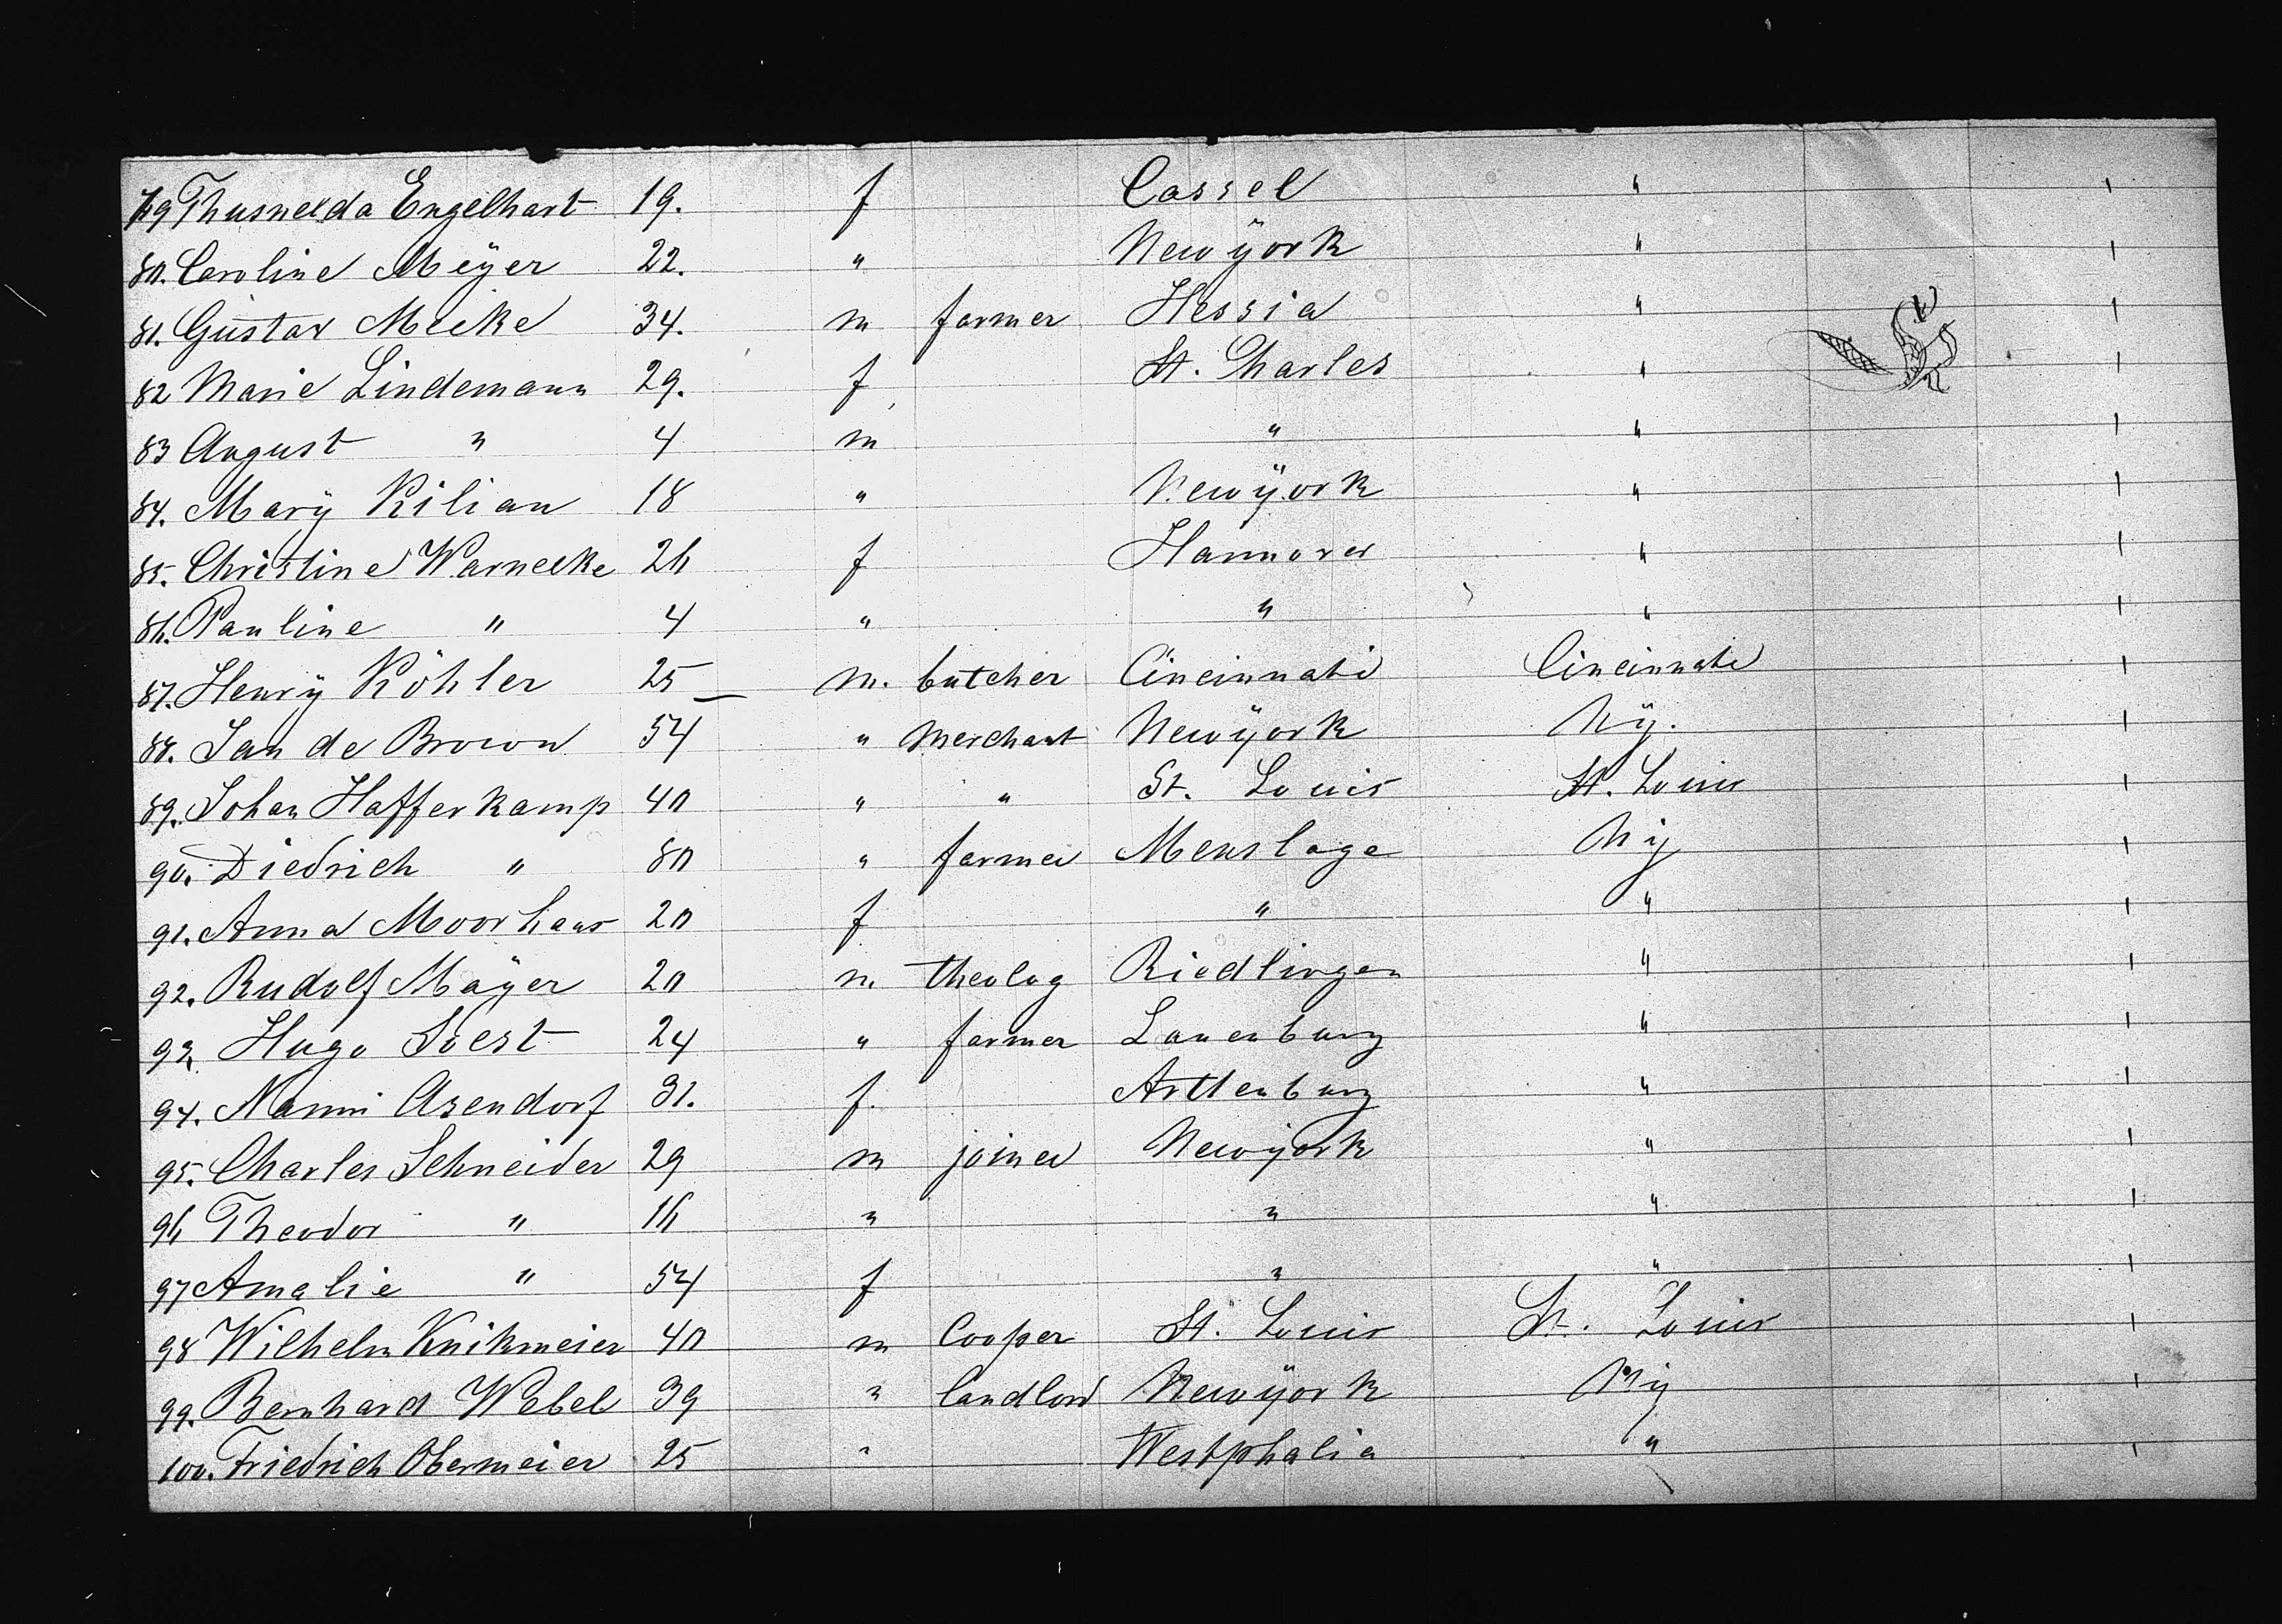 79 Thusnelda Engelhart 19. f Cassel " 1
80. Caroline Meÿer 22. " Newÿork " 1
81. Gustav Mecke 34. m farmer Hessia " 1
82 Marie Lindemann 29. f St. Charles " 1
83 August " 4 m " " 1
84. Marÿ Kilian 18 " Newÿork " 1
85. Christine Warnecke 26 f Hannover " 1
86. Pauline " 4 " " " 1
87. Henrÿ Köhler 25 m. butcher Cincinnati Cincinnati 1
88. Jan de Brown 54 " Merchant Newÿork Nÿ. 1
89. Johan Hafferkamp 40 " " St. Louis St. Louis 1
90. Diedrich " 80 " farmer Menslage Nÿ 1
91. Anna Moorhaus 20 f " " 1
92. Rudolf Mäÿer 20 m. theolog Riedlingen " 1
93. Hugo Soest 24 " farmer Lauenburg " 1
94. Nanni Asendorf 31. f. Artlenburg " 1
95. Charles Schneider 29 m joiner Newÿork " 1
96 Theodor " 16 " " " 1
97 Amalie " 54 f " " 1
98 Wilhelm Knikmeier 40 m Cooper St. Louis St. Louis 1
99. Bernhard Webel 39 " landlord Newÿork Nÿ 1
100. Friedrich Obermeier 25 " Westphalia " 1